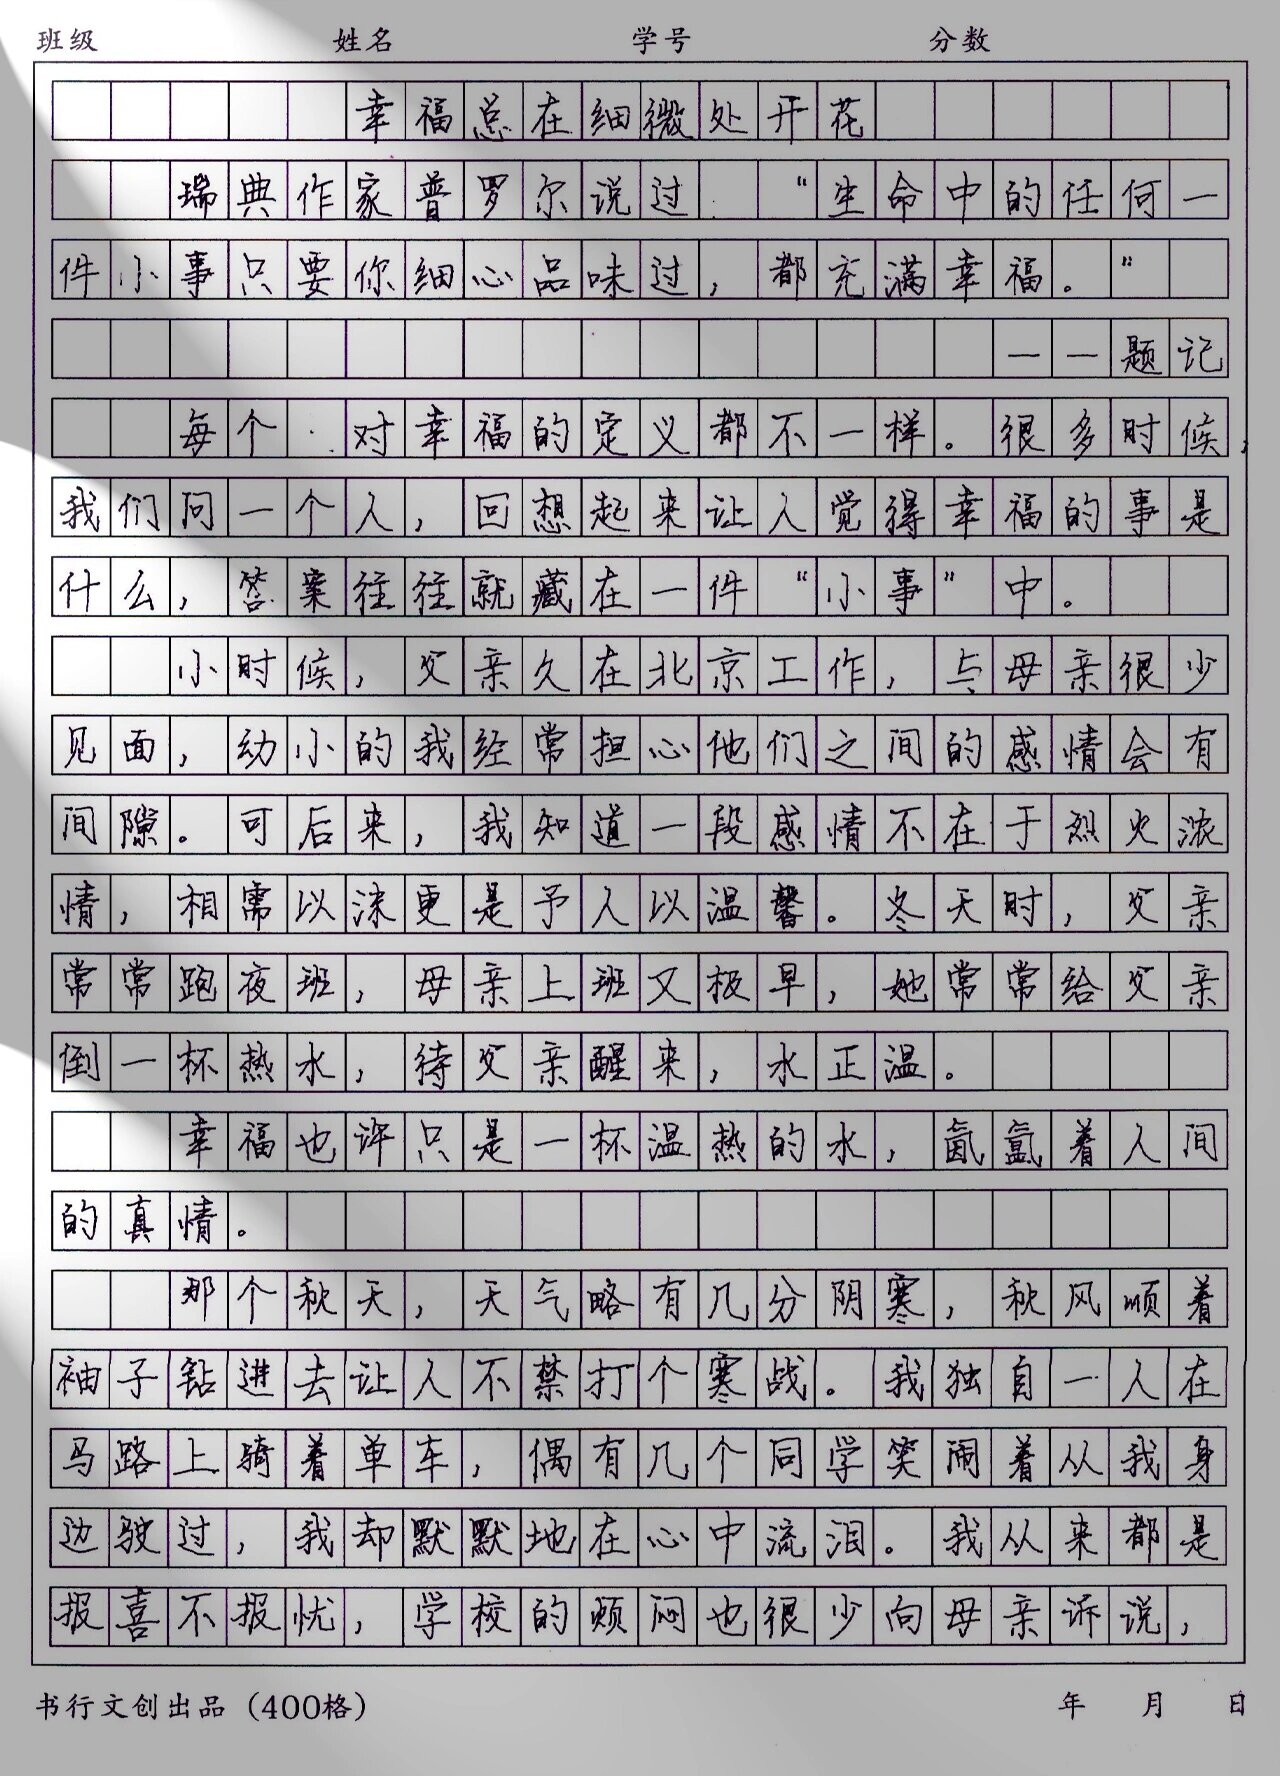 班级 姓名 学号 分数
幸福总在细微处开花
瑞典作家普罗尔说过 “生命中的任何一
件小事只要你细心品味过，都充满幸福。“
——题记
每个 对幸福的定义都不一样。很多时候，
我们问一个人，回想起来让人觉得幸福的事是
什么，答案往往就藏在一件“小事”中。
小时候，父亲久在北京工作，与母亲很少
见面，幼小的我经常担心他们之间的感情会有
间隙。可后来，我知道一段感情不在于烈火浓
情，相需以沫更是予人以温馨。冬天时，父亲
常常跑夜班，母亲上班又极早，她常常给父亲
倒一杯热水，待父亲醒来，水正温。
幸福也许只是一杯温热的水，氤氲着人间
的真情。
那个秋天，天气略有几分阴寒，秋风顺着
袖子钻进去让人不禁打个寒战。我独自一人在
马路上骑着单车，偶有几个同学笑闹着从我身
边驶过，我却默默地在心中流泪。我从来都是
报喜不报忧，学校的烦闷也很少向母亲诉说，
书行文创出品（400格） 年 月 日